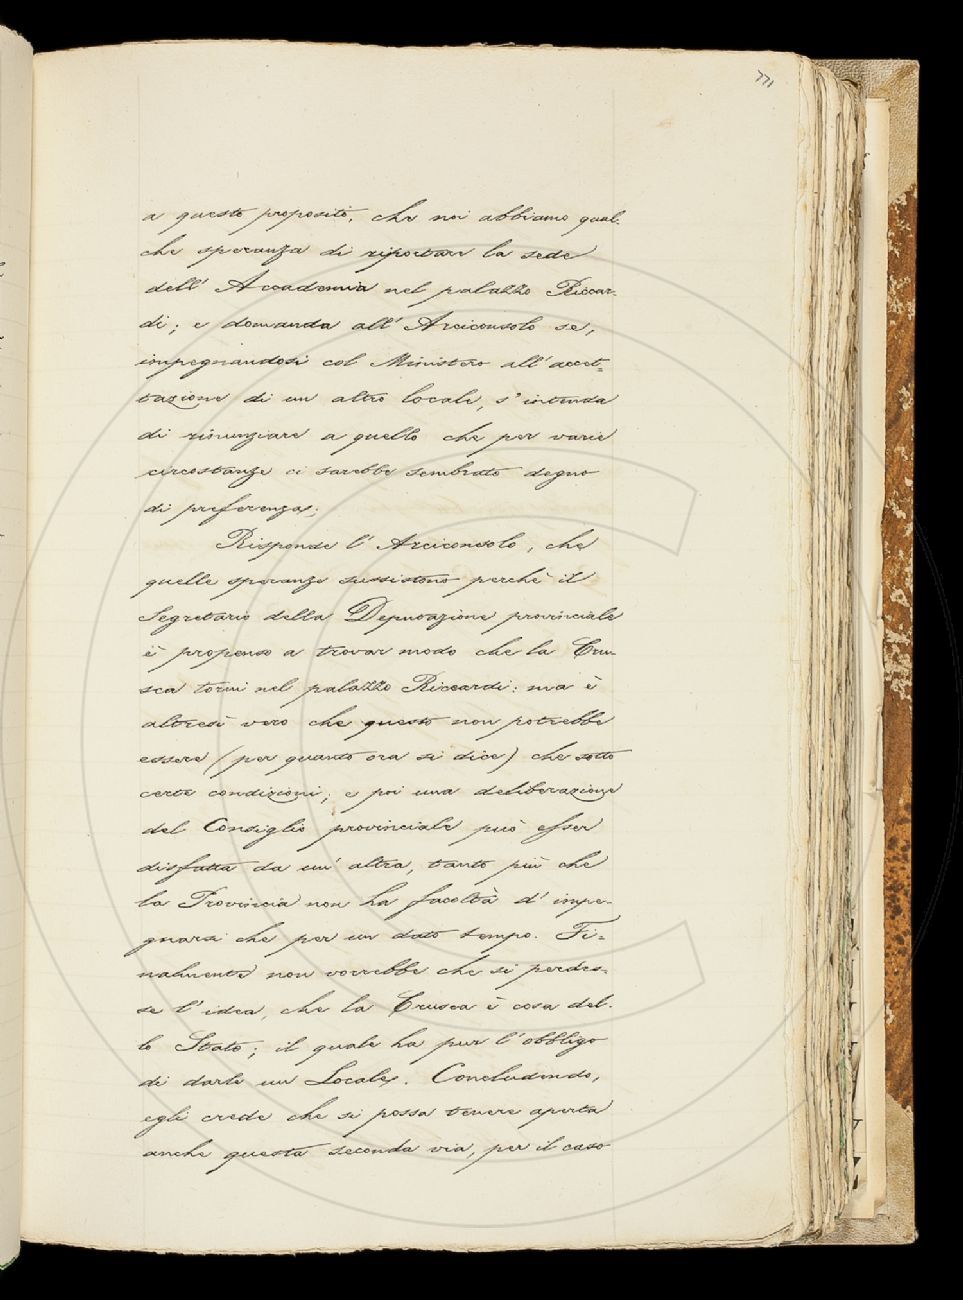 771
a questo proposito, che noi abbiamo qual-
che speranza di riportare la sede
dell' Accademia nel palazzo Riccar-
di; e domanda all' Arciconsolo se,
impegnandosi col Ministero all' accet-
tazione di un altro locale, s' intenda
di rinunziare a quello che per varie
circostanze ci sarebbe sembrato degno
di preferenza.
Risponde l' Arciconsolo, che
quelle speranze sussistono perchè il
Segretario della Deputazione provinciale
è propenso a trovar modo che la Cru-
sca torni nel palazzo Riccardi: ma è
altresì vero che questo non potrebbe
essere (per quanto ora si dice) che sotto
certe condizioni; e poi una deliberazione
del Consiglio provinciale può esser
disfatta da un' altra, tanto più che
la Provincia non ha facoltà d' impe-
gnarsi che per un dato tempo. Fi-
nalmente non vorrebbe che si perdes-
se l' idea, che la Crusca è cosa del-
lo Stato; il quale ha pur l' obbligo
di darle un Locale. Concludendo,
egli crede che si possa tenere aperta
anche questa seconda via, per il caso